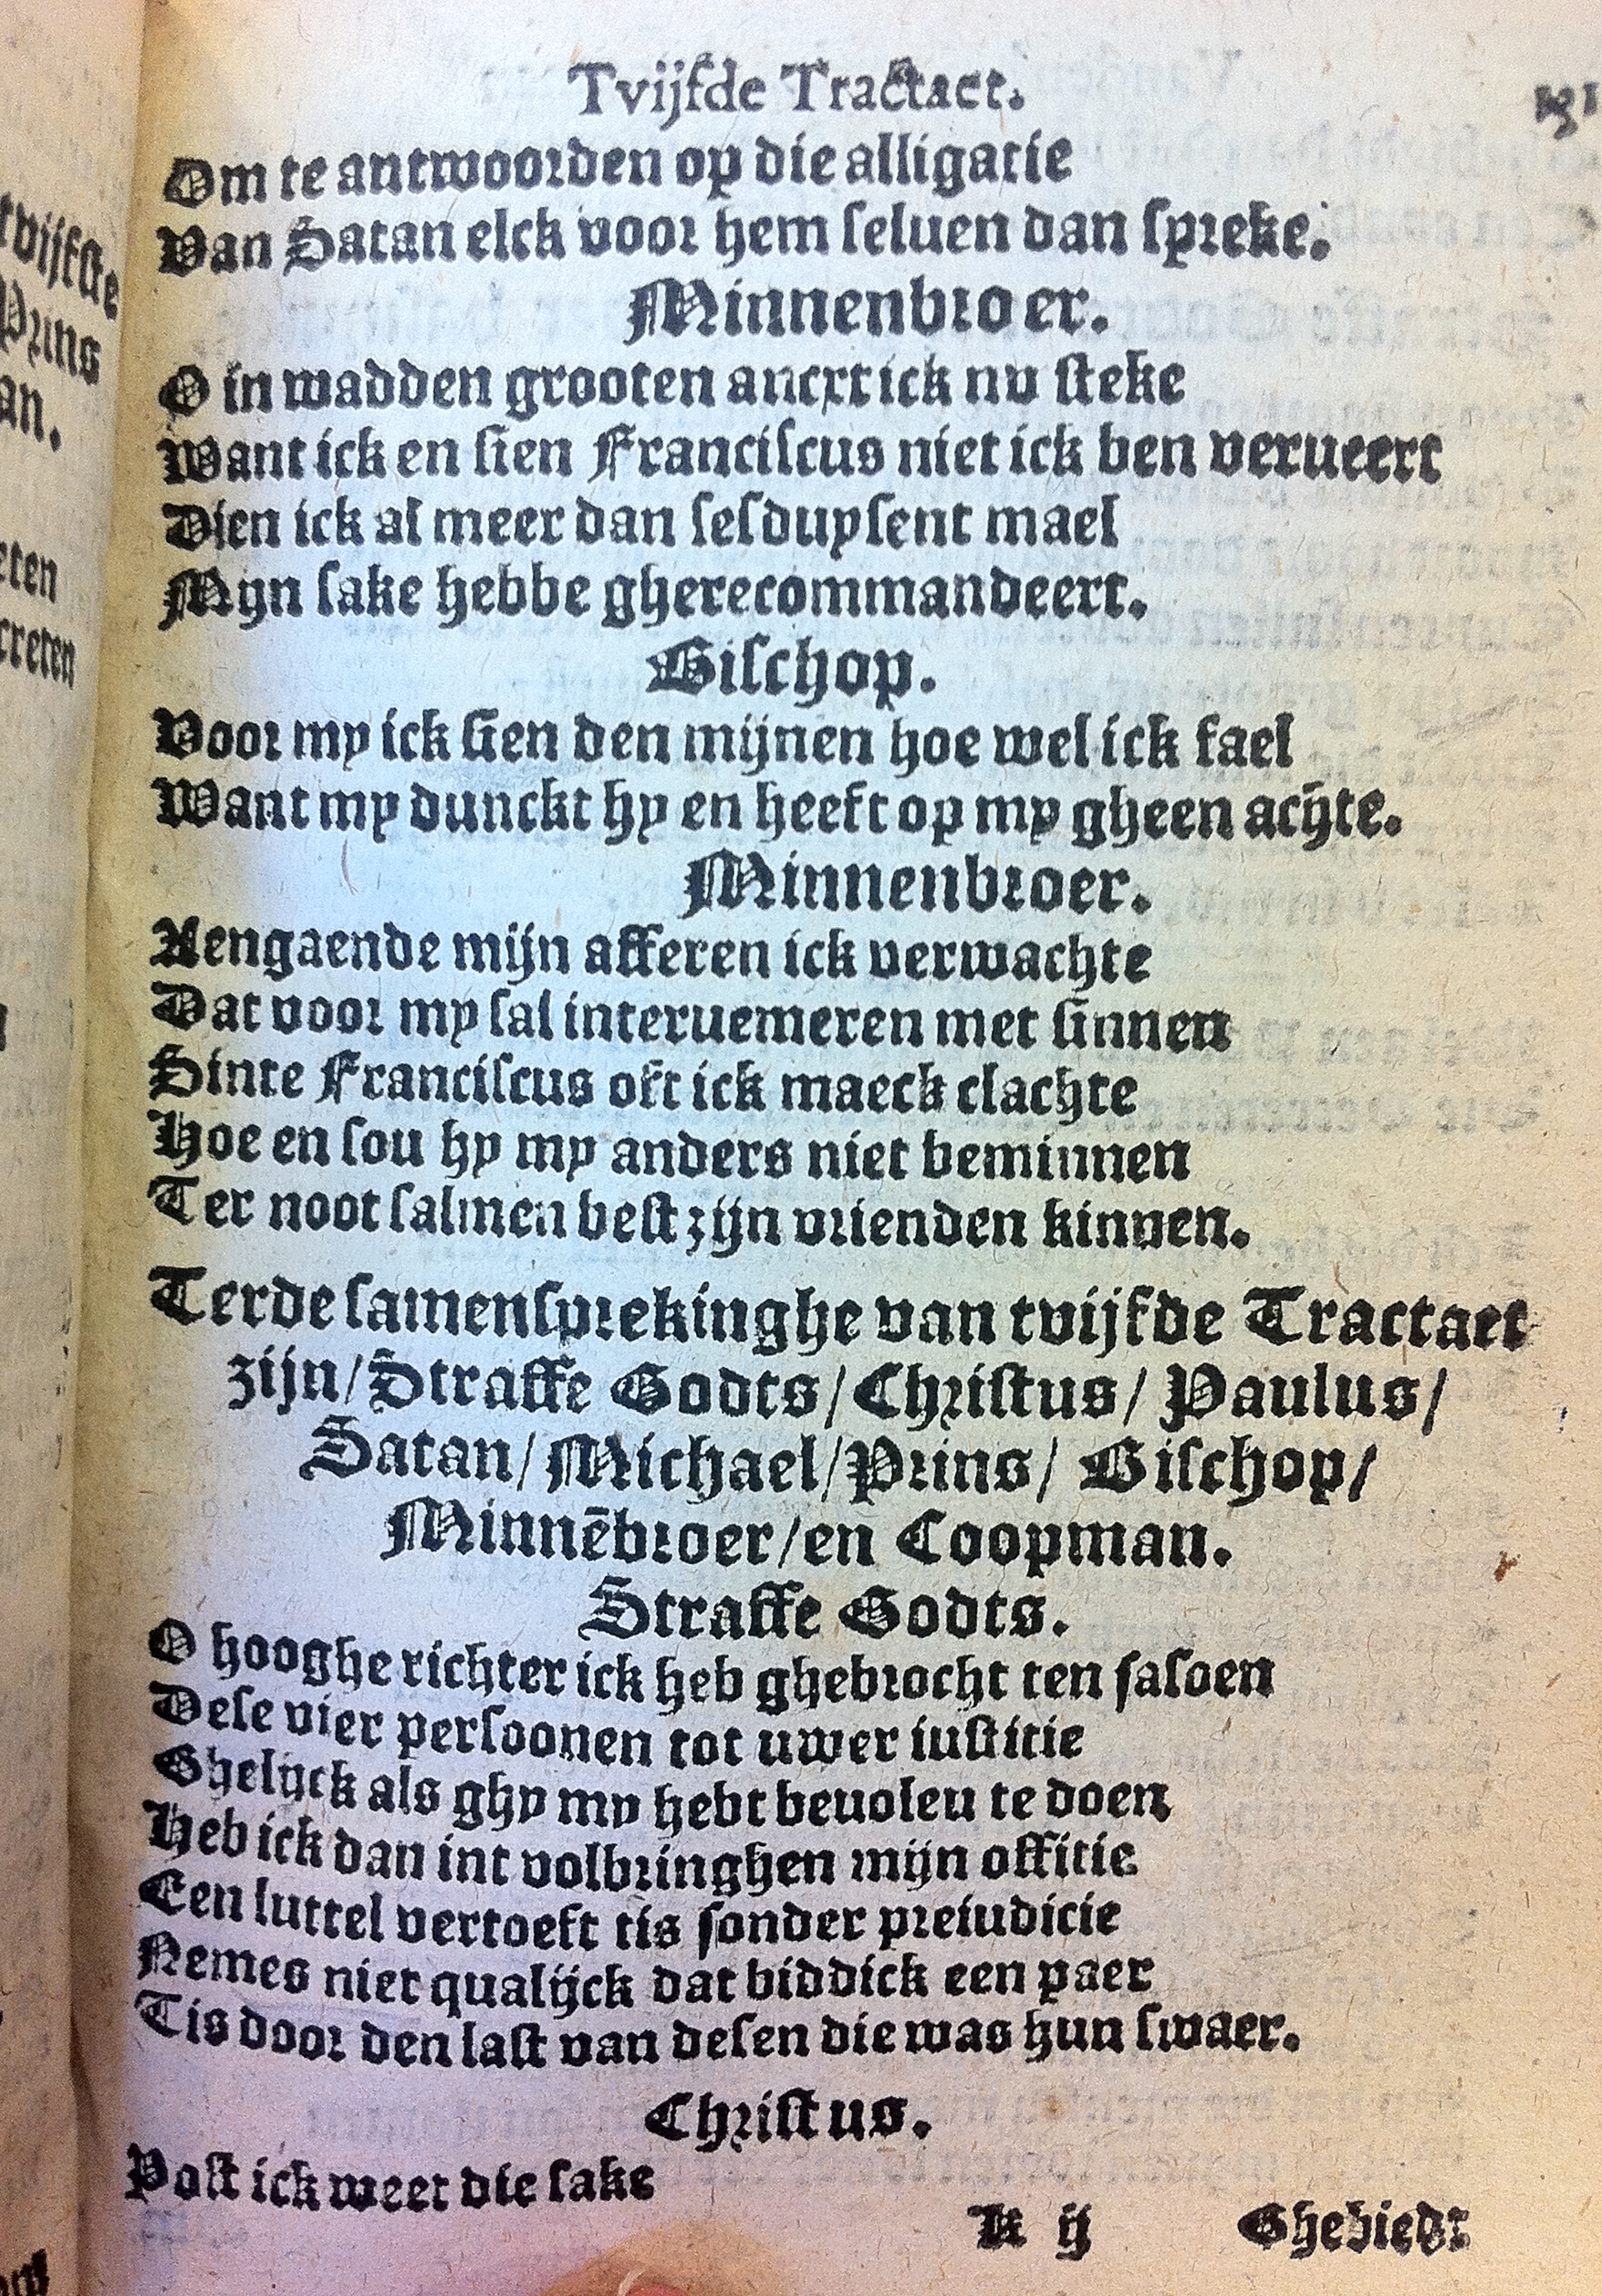 Tvijfde Tractaet.
131
Om te antwoorden op die alligatie
Van Satan elck voor hem seluen dan spreke.
Minnenbroer.
O in wadden grooten ancxt ick nu steke
Want ick en sien Franciscus niet ick ben verueert
Dien ick al meer dan sesduysent mael
Mijn sake hebbe gherecommandeert.
Bisschop.
Voor my ick sien den mijnen hoe wel ick fael
Want my dunckt hy en heeft op my gheen achte.
Minnenbroer.
Aengaende mijn afferen ick verwachte
Dat voor my sal interuemeren met sinnen
Sinte Franciscus oft ick maeck clachte
Hoe en sou hy my anders niet beminnen
Ter noot salmen best zijn vrienden kinnen.
Terde samensprekinghe van tvijfde Tractaet
zijn/Straffe Godts/Christus/ Paulus/
Satan/Michael/Prins/ Bischop/
Minnēbroer/en Coopman.
Straffe Godts.
O hooghe richter ick heb ghebrocht ten sasoen
Dese vier persoonen tot uwer iustitie
Ghelijck als ghy my hebt beuoleu te doen
Heb ick dan int volbringhen mijn offitie
Een luttel vertoeft tis sonder preiudicie
Nemes niet qualijck dat biddick een paer
Tis door den last van desen die was hun swaer.
Christus.
Post ick weet die sake
K ij
Ghebiedt
tvijfste
Prins
an.
eten
creten